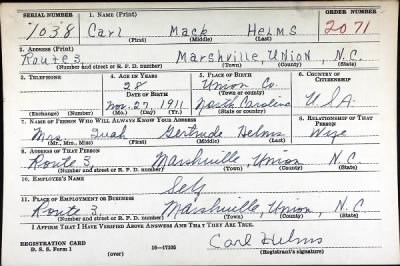 SERIAL NUMBER 1. NAME (Print) ORDER NUMBER
1038 Carl Mack Helms 2071
(First) (Middle) (Last)
2. ADDRESS (Print)
Route 3 Marshville, Union, N.C.
(Number and street or R. F. D. number) (Town) (County) (State)
3. TELEPHONE 4. AGE IN YEARS 5. PLACE OF BIRTH 6. COUNTRY OF CITIZENSHIP
28 Union Co.
DATE OF BIRTH (Town or county)
Nov. 27, 1911 North Carolina U.S.A.
(Exchange) (Number) (Mo.) (Day) (Yr.) (State or country)
7. NAME OF PERSON WHO WILL ALWAYS KNOW YOUR ADDRESS 8. RELATIONSHIP OF THAT PERSON
Mrs. Gertrude Helms Wife
(Mr., Mrs., Miss) (First) (Middle) (Last)
9. ADDRESS OF THAT PERSON
Route 3, Marshville, Union N.C.
(Number and street or R. F. D. number) (Town) (County) (State)
10. EMPLOYER'S NAME
Self
11. PLACE OF EMPLOYMENT OR BUSINESS
Route 3, Marshville, Union, N.C.
(Number and street or R. F. D. number) (Town) (County) (State)
I AFFIRM THAT I HAVE VERIFIED ABOVE ANSWERS AND THAT THEY ARE TRUE.
Carl Helms
REGISTRATION CARD 16—17105 (Registrant's signature)
D. S. S. Form 1 (over)